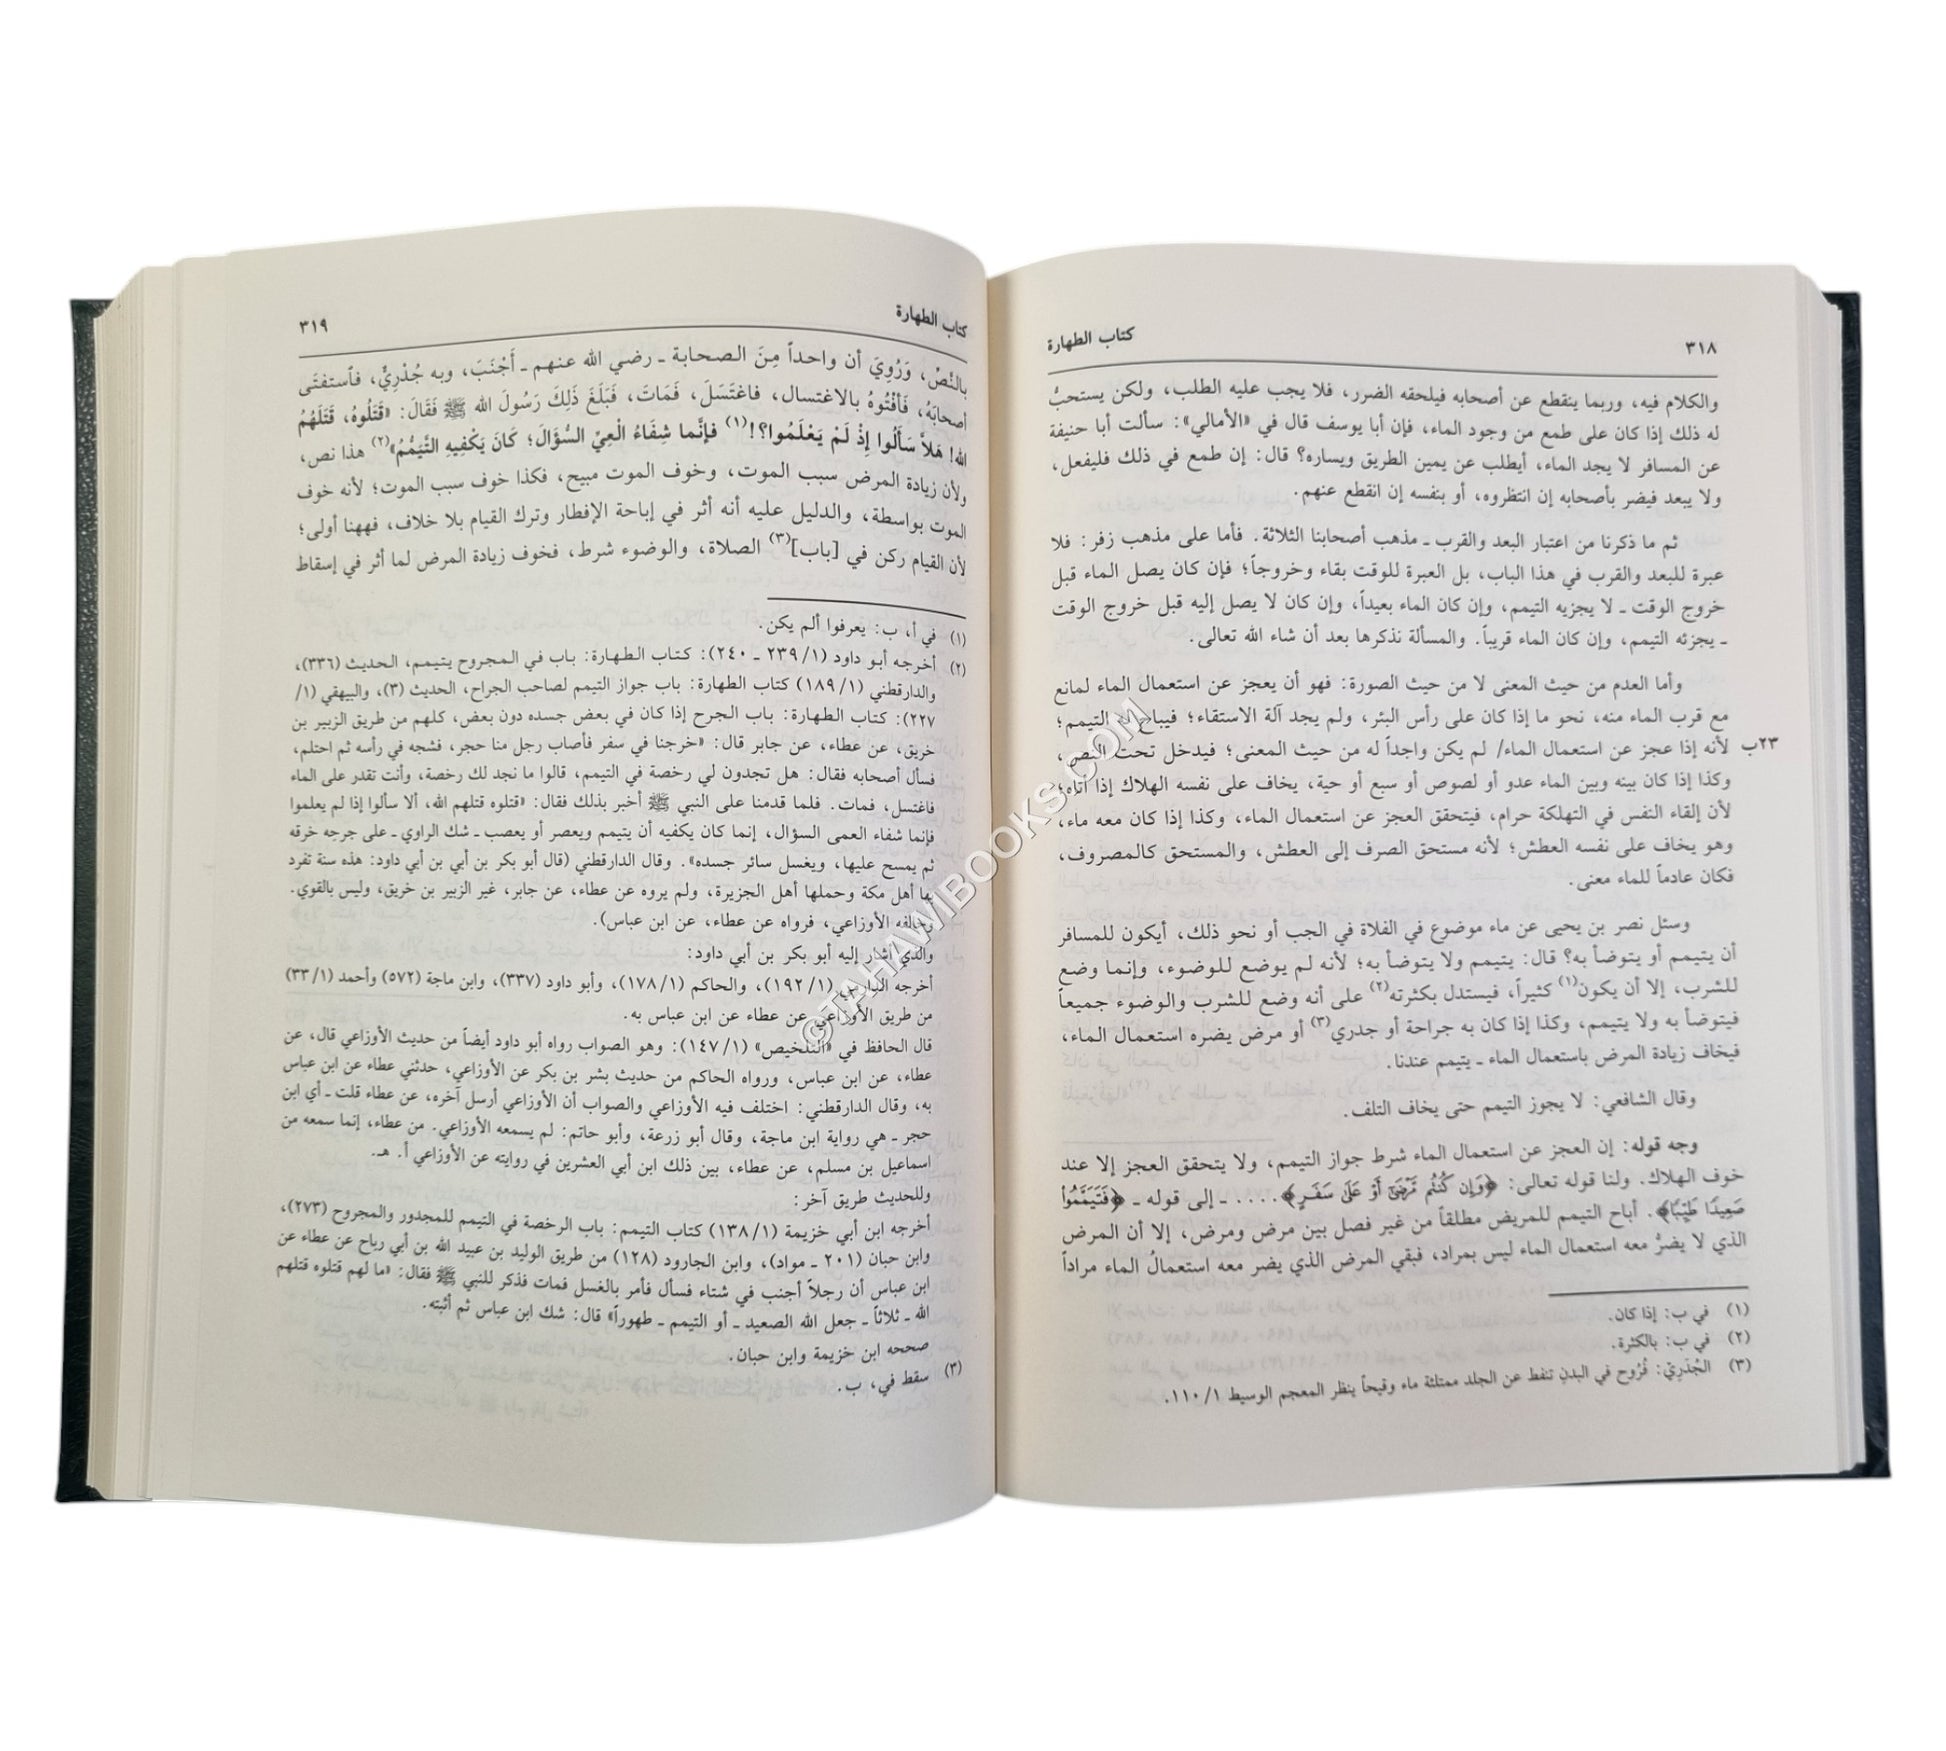 ٣١٨
كتاب الطهارة
والكلام فيه، وربما ينقطع عن أصحابه فيلحقه الضرر، فلا يجب عليه الطلب، ولكن يستحبُّ
له ذلك إذا كان على طمع من وجود الماء، فإن أبا يوسف قال في «الأمالي»: سألت أبا حنيفة
عن المسافر لا يجد الماء، أيطلب عن يمين الطريق ويساره؟ قال: إن طمع في ذلك فليفعل،
ولا يبعد فيضر بأصحابه إن انتظروه، أو بنفسه إن انقطع عنهم.
ثم ما ذكرنا من اعتبار البعد والقرب ـ مذهب أصحابنا الثلاثة. فأما على مذهب زفر: فلا
عبرة للبعد والقرب في هذا الباب، بل العبرة للوقت بقاء وخروجاً؛ فإن كان يصل الماء قبل
خروج الوقت ـ لا يجزيه التيمم، وإن كان الماء بعيداً، وإن كان لا يصل إليه قبل خروج الوقت
ـ يجزئه التيمم، وإن كان الماء قريباً. والمسألة نذكرها بعد أن شاء الله تعالى.
وأما العدم من حيث المعنى لا من حيث الصورة: فهو أن يعجز عن استعمال الماء لمانع
مع قرب الماء منه، نحو ما إذا كان على رأس البئر، ولم يجد آلة الاستقاء؛ فيباح له التيمم؛
٢٣ب لأنه إذا عجز عن استعمال الماء/ لم يكن واجداً له من حيث المعنى؛ فيدخل تحت النص،
وكذا إذا كان بينه وبين الماء عدو أو لصوص أو سبع أو حية، يخاف على نفسه الهلاك إذا أتاه؛
لأن إلقاء النفس في التهلكة حرام، فيتحقق العجز عن استعمال الماء، وكذا إذا كان معه ماء،
وهو يخاف على نفسه العطش؛ لأنه مستحق الصرف إلى العطش، والمستحق كالمصروف،
فكان عادماً للماء معنى.
وسئل نصر بن يحيى عن ماء موضوع في الفلاة في الجب أو نحو ذلك، أيكون للمسافر
أن يتيمم أو يتوضأ به؟ قال: يتيمم ولا يتوضأ به؛ لأنه لم يوضع للوضوء، وإنما وضع
للشرب، إلا أن يكون(١) كثيراً، فيستدل بكثرته(٢) على أنه وضع للشرب والوضوء جميعاً
فيتوضأ به ولا يتيمم، وكذا إذا كان به جراحة أو جدري(٣) أو مرض يضره استعمال الماء،
فيخاف زيادة المرض باستعمال الماء ـ يتيمم عندنا.
وقال الشافعي: لا يجوز التيمم حتى يخاف التلف.
وجه قوله: إن العجز عن استعمال الماء شرط جواز التيمم، ولا يتحقق العجز إلا عند
خوف الهلاك. ولنا قوله تعالى: ﴿وَإِن كُنتُم مَّرْضَىٰٓ أَوْ عَلَىٰ سَفَرٍ﴾.... ـ إلى قوله ـ ﴿فَتَيَمَّمُوا۟
صَعِيدًا طَيِّبًا﴾. أباح التيمم للمريض مطلقاً من غير فصل بين مرض ومرض، إلا أن المرض
الذي لا يضرُّ معه استعمال الماء ليس بمراد، فبقي المرض الذي يضر معه استعمالُ الماء مراداً
(١) في ب: إذا كان.
(٢) في ب: بالكثرة.
(٣) الجُدَرِيّ: قُرُوح في البدنِ تنفط عن الجلد ممتلئة ماء وقيحاً ينظر المعجم الوسيط ١١٠/١.
كتاب الطهارة
٣١٩
بالنَّصِّ، وَرُوِيَ أن واحداً مِنَ الصحابة ـ رضي الله عنهم ـ أَجْنَبَ، وبه جُدْرِيٌّ، فاستفتَى
أصحابَهُ، فَأفْتُوهُ بالاغتسال، فاغتَسَلَ، فَمَاتَ، فَبَلَغَ ذَلِكَ رَسُولَ الله ﷺ فَقَالَ: «قَتَلُوهُ، قَتَلَهُمُ
الله! هَلاَّ سَأَلُوا إذْ لَمْ يَعْلَمُوا؟!(١) فإنَّما شِفَاءُ الْعِيِّ السُّؤَالَ؛ كَانَ يَكْفِيهِ التَّيَمُّمُ»(٢) هذا نص،
ولأن زيادة المرض سبب الموت، وخوف الموت مبيح، فكذا خوف سبب الموت؛ لأنه خوف
الموت بواسطة، والدليل عليه أنه أثر في إباحة الإفطار وترك القيام بلا خلاف، فههنا أولى؛
لأن القيام ركن في [باب](٣) الصلاة، والوضوء شرط، فخوف زيادة المرض لما أثر في إسقاط
(١) في أ، ب: يعرفوا ألم يكن.
(٢) أخرجه أبو داود (٢٣٩/١ ـ ٢٤٠): كتاب الطهارة: باب في المجروح يتيمم، الحديث (٣٣٦)،
والدارقطني (١٨٩/١) كتاب الطهارة: باب جواز التيمم لصاحب الجراح، الحديث (٣)، والبيهقي (١/
٢٢٧): كتاب الطهارة: باب الجرح إذا كان في بعض جسده دون بعض، كلهم من طريق الزبير بن
خريق، عن عطاء، عن جابر قال: «خرجنا في سفر فأصاب رجل منا حجر، فشجه في رأسه ثم احتلم،
فسأل أصحابه فقال: هل تجدون لي رخصة في التيمم، قالوا ما نجد لك رخصة، وأنت تقدر على الماء
فاغتسل، فمات. فلما قدمنا على النبي ﷺ أخبر بذلك فقال: «قتلوه قتلهم الله، ألا سألوا إذا لم يعلموا
فإنما شفاء العمى السؤال، إنما كان يكفيه أن يتيمم ويعصر أو يعصب ـ شك الراوي ـ على جرحه خرقه
ثم يمسح عليها، ويغسل سائر جسده». وقال الدارقطني (قال أبو بكر بن أبي بن أبي داود: هذه سنة تفرد
بها أهل مكة وحملها أهل الجزيرة، ولم يروه عن عطاء، عن جابر، غير الزبير بن خريق، وليس بالقوي.
وخالفه الأوزاعي، فرواه عن عطاء، عن ابن عباس).
والذي أشار إليه أبو بكر بن أبي داود:
أخرجه الدارمي (١٩٢/١)، والحاكم (١٧٨/١)، وأبو داود (٣٣٧)، وابن ماجة (٥٧٢) وأحمد (٣٣/١)
من طريق الأوزاعي عن عطاء عن ابن عباس به.
قال الحافظ في «التلخيص» (١٤٧/١): وهو الصواب رواه أبو داود أيضاً من حديث الأوزاعي قال، عن
عطاء، عن ابن عباس، ورواه الحاكم من حديث بشر بن بكر عن الأوزاعي، حدثني عطاء عن ابن عباس
به، وقال الدارقطني: اختلف فيه الأوزاعي والصواب أن الأوزاعي أرسل آخره، عن عطاء قلت ـ أي ابن
حجر ـ هي رواية ابن ماجة، وقال أبو زرعة، وأبو حاتم: لم يسمعه الأوزاعي. من عطاء، إنما سمعه من
اسماعيل بن مسلم، عن عطاء، بين ذلك ابن أبي العشرين في روايته عن الأوزاعي أ. هـ.
وللحديث طريق آخر:
أخرجه ابن أبي خزيمة (١٣٨/١) كتاب التيمم: باب الرخصة في التيمم للمجدور والمجروح (٢٧٣)،
وابن حبان (٢٠١ ـ مواد)، وابن الجارود (١٢٨) من طريق الوليد بن عبيد الله بن أبي رباح عن عطاء عن
ابن عباس أن رجلاً أجنب في شتاء فسأل فأمر بالغسل فمات فذكر للنبي ﷺ فقال: «ما لهم قتلوه قتلهم
الله ـ ثلاثاً ـ جعل الله الصعيد ـ أو التيمم ـ طهوراً» قال: شك ابن عباس ثم أثبته.
صححه ابن خزيمة وابن حبان.
(٣) سقط في، ب.
©TAHAWIBOOKS.COM